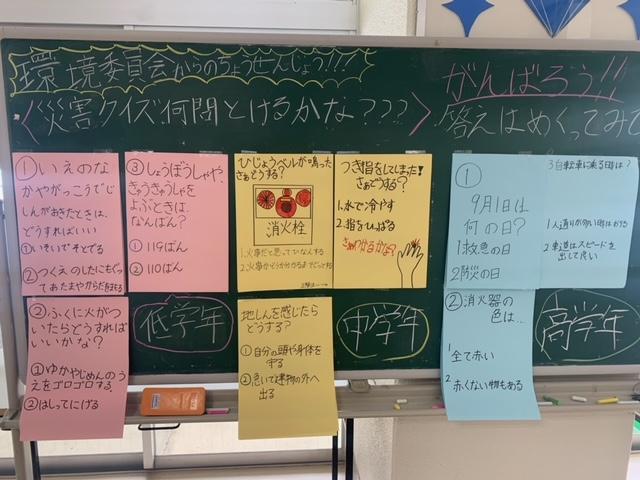 環境委員会からのちょうせんじょう!!!
がんばろう!!
〈災害クイズ何問とけるかな???〉
答えはめくってみて
①いえのな
かやがっこうでじ
しんがおきたときは、
どうすればいい
①いそいでそとでる
②つくえのしたにもぐっ
てあたまやからだをまもる
③しょうぼうしゃや、
きゅうきゅうしゃを
よぶときは、
なんばん?
①119ばん
②110ばん
②ふくに火がつ
いたらどうすれば
いいかな?
①ゆかやじめんのう
えをゴロゴロする
②はしってにげる
低学年
ひじょうベルが鳴った
さぁどうする?
消火栓
1.火事だと思ってひなんする
つき指をしてしまった!
さぁどうする?
1.水で冷やす
2.指をひっぱる
さぁわかるかな?
地しんを感じたら
どうする?
①自分の頭や身体を
守る
②急いで建物の外へ
出る
中学年
①
9月1日は
何の日?
1救急の日
2防災の日
3自転車に乗る時は?
1人通りが多い時はおりる
2車道はスピードを
出して良い
②消火器の
色は…
1
全て赤い
2 赤くない物もある
高学年